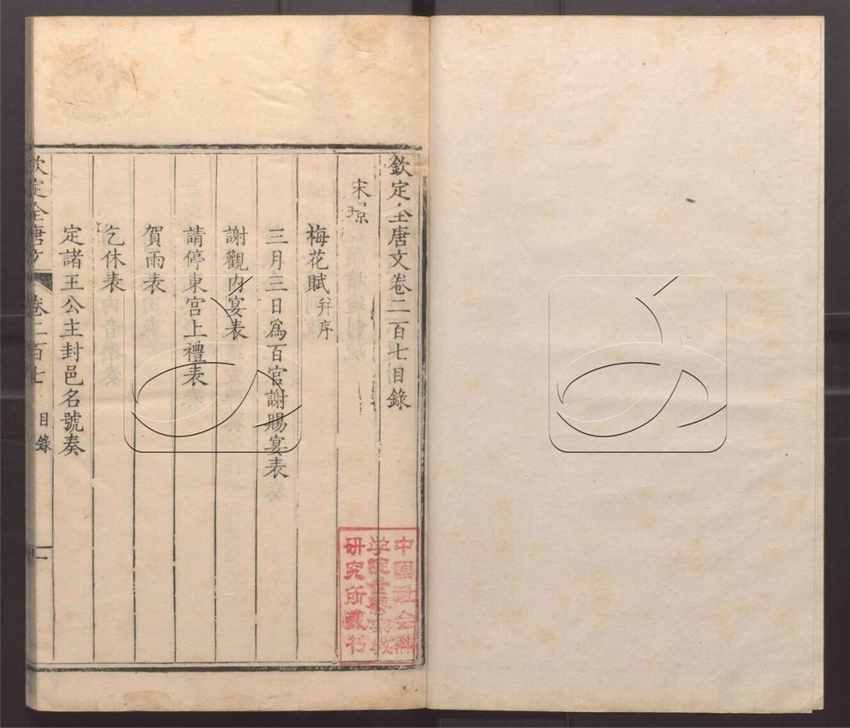 欽定全唐文卷二百七目錄
宋璟
梅花賦并序
三月三日為百官謝賜宴表
謝觀内宴表
請停東宮上禮表
賀雨表
乞休表
定諸王公主封邑名號奏
欽定全唐文 卷二百七 目錄 一
中國社会科
学院世界宗教
研究所藏书